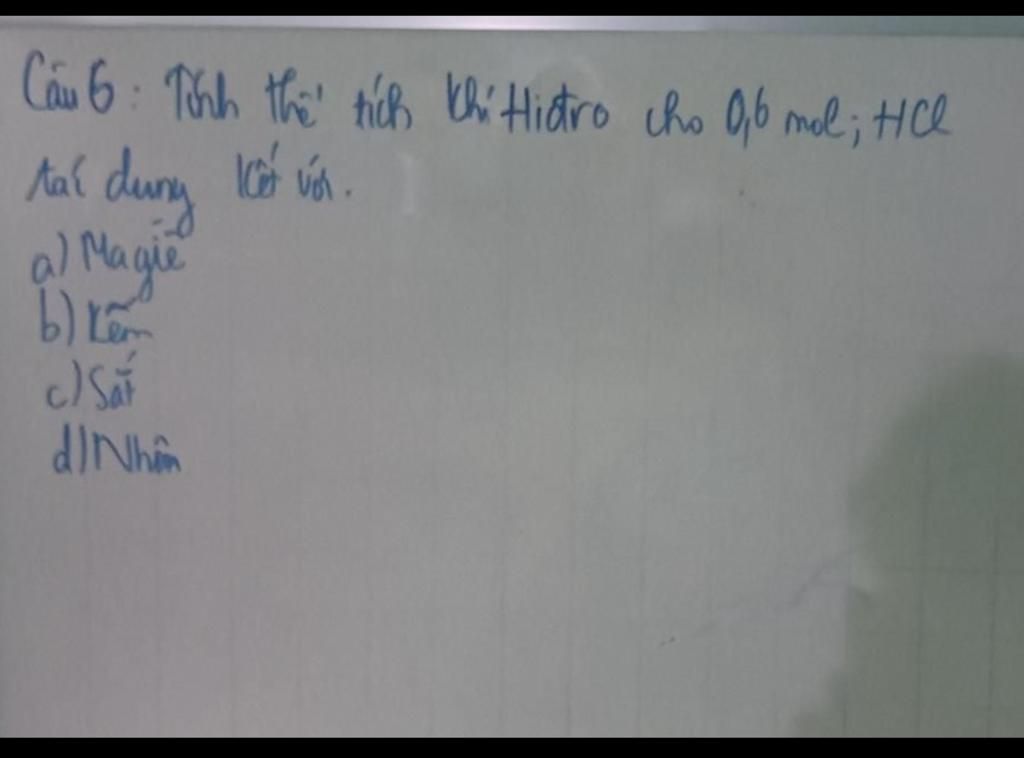 Câu 6: Tính thể tích khí Hiđro cho 0,6 mol; HCl
tác dụng kết với.
a) Magiê
b) Kẽm
c) Sắt
d) Nhôm